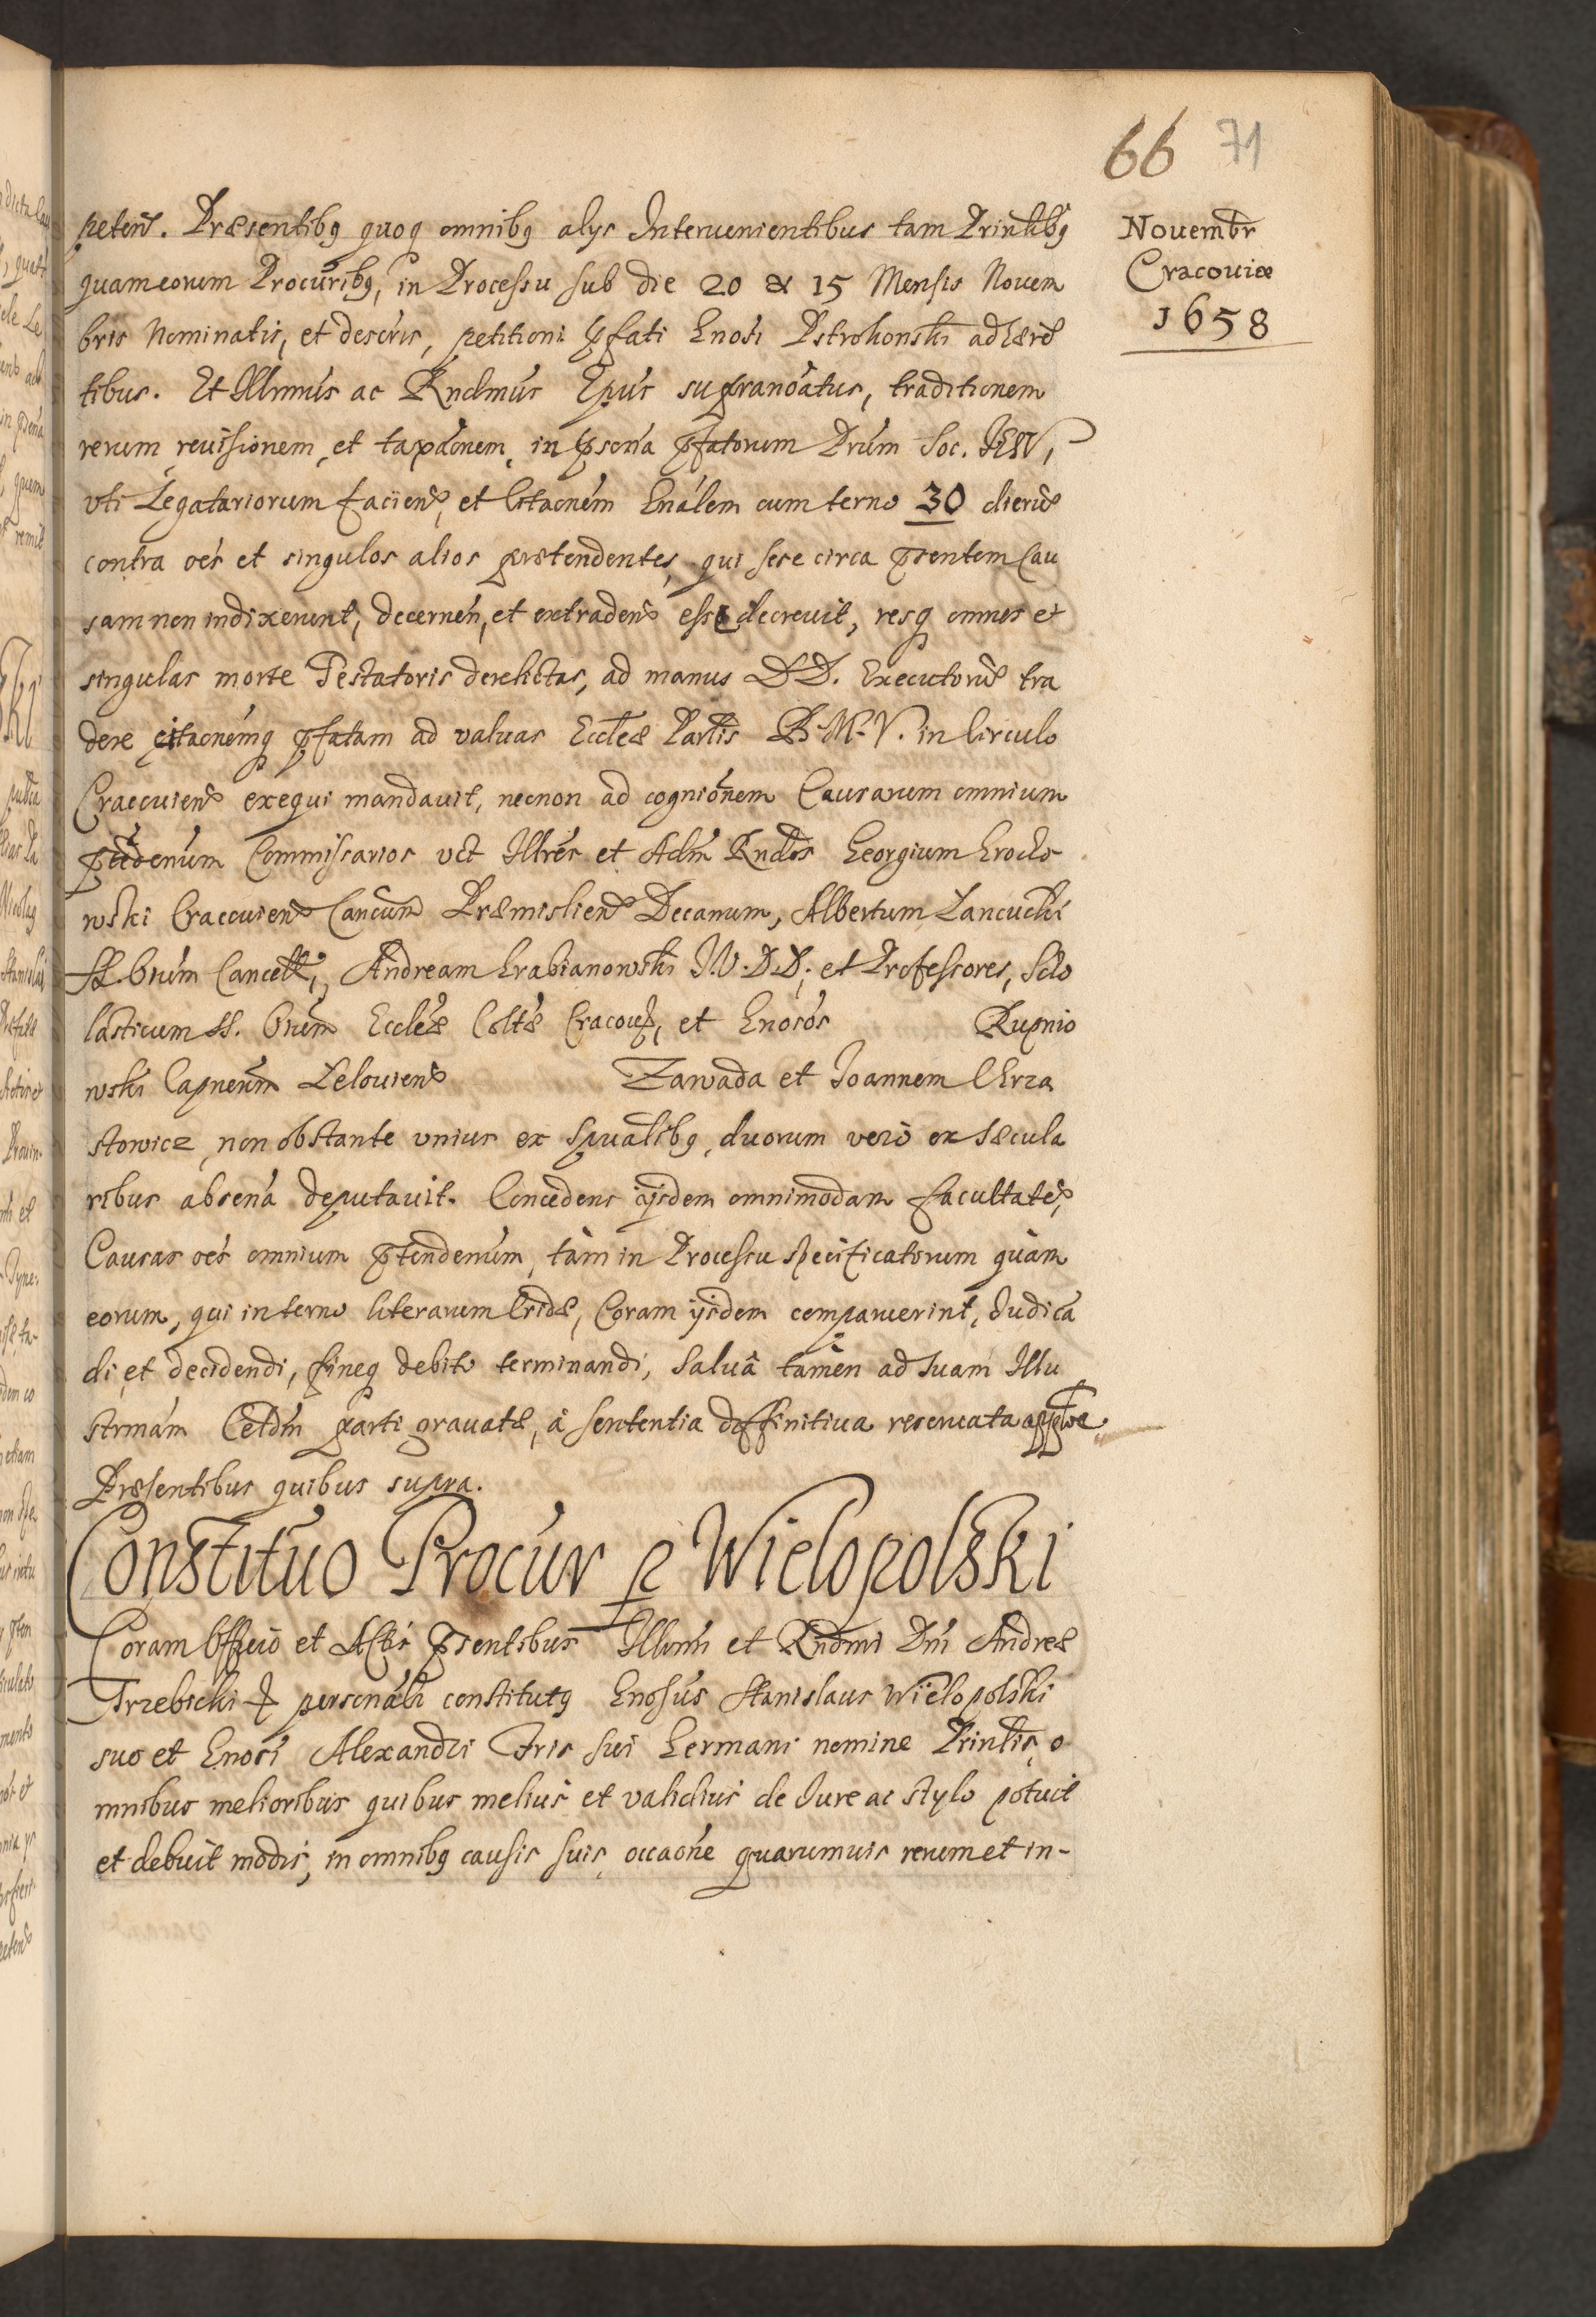 66 71
Novembr
Cracoviæ
1658
peten̄. Præsentibq quoq omnibq alys Interuenientibus tam Prinlibq
quam eorum Procuribq, in Processu sub die 20 & 15 Mensis Nouem
bris nominatis, et descris, petitioni pfati Gnosi Pstrokonski adhærē
tibus. Et Illmus ac Rndmus Epus supranoatus, traditionem
rerum reuisionem, et taxaonem, in psona pfatorum Prum Soc. IESV,
vti Legatariorum facien, et Citaonem Gnalem cum terno 30 dierū
contra oes et singulos alios prætendentes, qui sese circa psentem Cau
sam non indixerunt, decernen, et extraden esse decreuit, resq omnes et
singulas morte Testatoris derelictas, ad manus DD. Executorū tra
dere citaonemq pfatam ad valuas Ecclæ Partis B. M. V. in Circulo
Cracouien exequi mandauit, necnon ad cognionem Causarum omnium
ptēdenum Commissarios vct Illres et Adm Rndos Georgium Grocho
wski Cracouien Cancum Præmislien Decanum, Albertum Lancucki
SS. Onum Cancell, Andream Grabianowski I.V.D.D. et Professores, Scho
lasticum SS. Onum Ecclæ Coltæ Cracou, et Gnosos Rupnio
wski Capneum Lelouien Zawada et Joannem Chrza
stowicz, non obstante vnius ex spualibq, duorum vero ex sæcula
ribus absena deputauit. Concedens ijsdem omnimodam facultatē,
Causas oes omnium ptendenum, tam in Processu specificatorum quam
eorum, qui in terno literarum Cridæ, Coram ijsdem comparuerint, Iudica
di et decidendi, fineq debito terminandi, salua tamen ad suam Illu
strmam Cetdm parti grauatæ, a sententia deffinitiua reseruata applone.
Præsentibus quibus supra.
Constituo Procur p Wielopolski
Coram Officio et Actis psentibus Illmi et Rndmi Dni Andreæ
Trzebicki & personali constitutq Gnosus Stanislaus Wielopolski
suo et Gnosi Alexandri Fris sui Germani nomine Prinlis, o
mnibus melioribus quibus melius et validius de Iure ac stylo potuit
et debuit modis, in omnibq causis suis, occaone quarumuis rerum et in-